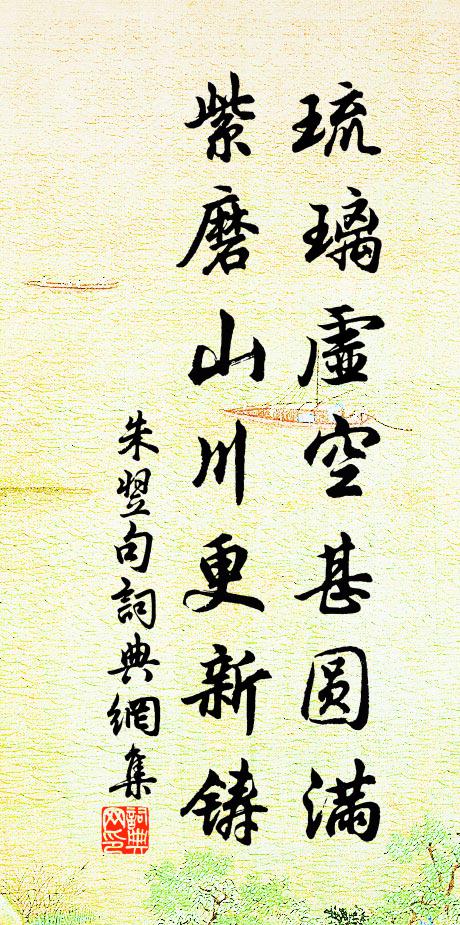 琉璃虚空甚圆满
紫磨山川更新铸
朱翌句詞典網集
詞典网印